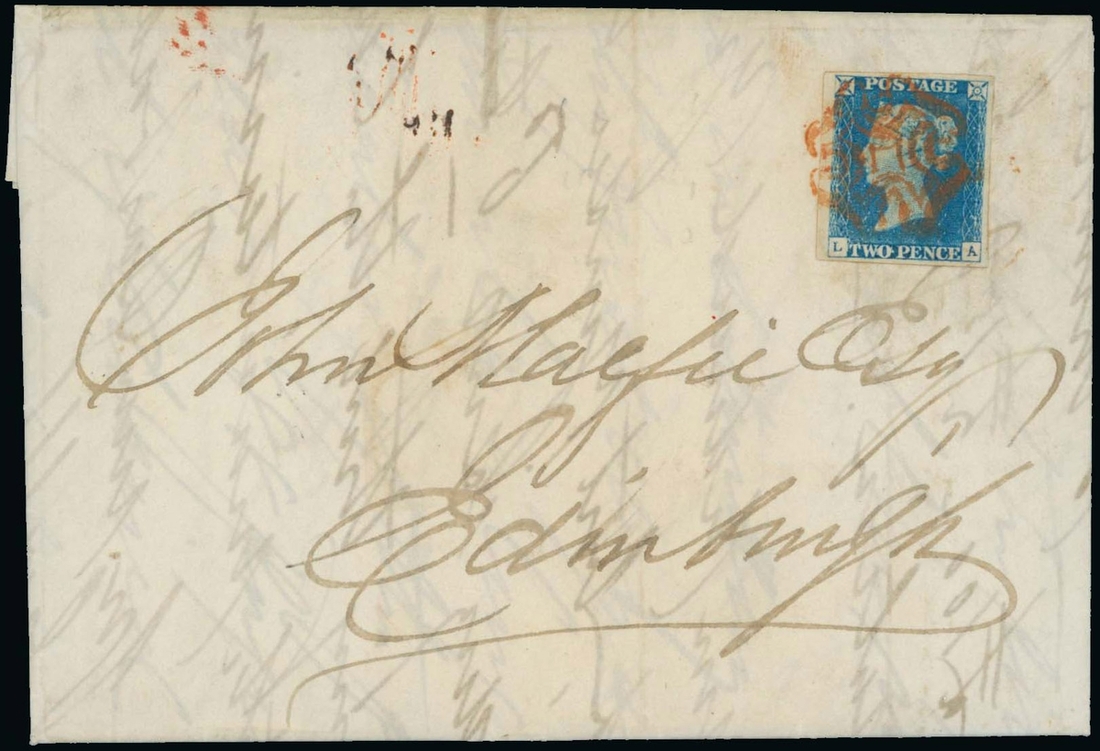 POSTAGE
TWO PENCE
L A
John Macfie Esq
Edinburgh